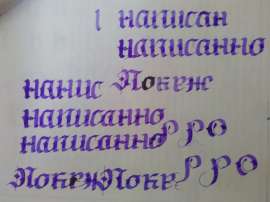 написан
написанно
нанис Покеж
написанно
написанно Р Р О
Покеж Поке Р Р О